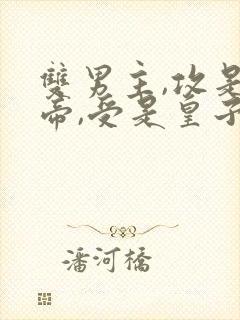 雙男主,攻是
帝,受是皇子
潘河橋